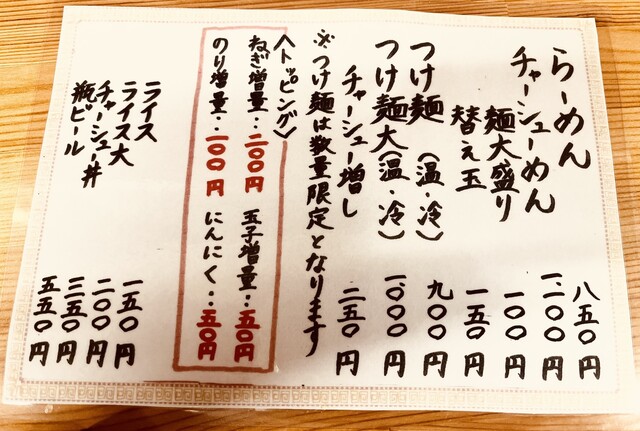 らーめん 八五〇円
チャーシューめん 一、二〇〇円
麺大盛り 一〇〇円
替え玉 一五〇円
つけ麺 (温・冷) 九〇〇円
つけ麺大(温・冷) 一、〇〇〇円
チャーシュー増し 二五〇円
※つけ麺は数量限定となります
〈トッピング〉
ねぎ増量‥二〇〇円 玉子増量‥五〇円
のり増量‥一〇〇円 にんにく‥五〇円
ライス 一五〇円
ライス大 二〇〇円
チャーシュー丼 三五〇円
瓶ビール 五五〇円